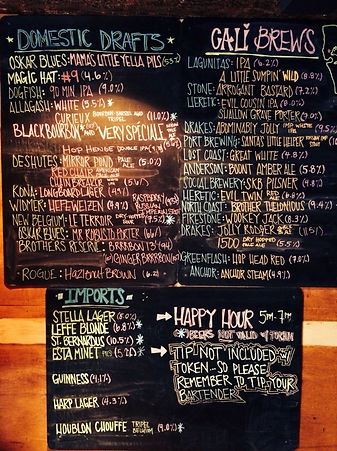 DOMESTIC DRAFTS
OSKAR BLUES: MAMAS LITTLE YELLA PILS (5.3%)
MAGIC HAT: #9 (4.6%)
DOGFISH: 90 MIN IPA (9.0%)
ALLAGASH: WHITE (5.5%)*
CURIEUX BOURBON-BARREL AGED TRIPEL (11.0%)*
BLACK BOURBON AND VERY SPECIALE
HOP HENGE DOUBLE IPA
DESHUTES: MIRROR POND PALE ALE (5.0%)
RED CHAIR AMERICAN
CHAIN BREAKER
KONA: LONGBOARD LAGER (4.9%)
WIDMER: HEFEWEIZEN (4.9%)
RASPBERRY RUSSIAN IMPERIAL STOUT
NEW BELGIUM: LE TERROIR DRY-HOPPED SOUR (7.5%)*
OSKAR BLUES: MR ROBUSTO PORTER
BROTHERS RESERVE: BRRRBON '13
GINGER BOURBON
ROGUE: HAZELNUT BROWN (6.2)
CALI BREWS
LAGUNITAS: IPA (6.2%)
A LITTLE SUMPIN' WILD (8.8%)
STONE: ARROGANT BASTARD (7.2%)
HERETIC: EVIL COUSIN IPA (8.0%)
SHALLOW GRAVE PORTER (7.0%)
DRAKES: ABOMINABLY JOLLY (9.5%)
PORT BREWING: SANTA'S LITTLE HELPER
LOST COAST: GREAT WHITE (4.8%)
ANDERSON: BOONT AMBER ALE (5.8%)
SOCIAL BREWERY: SKB PILSNER (4.8%)
HERETIC: EVIL TWIN RED ALE (6.8%)
NORTH COAST: BROTHER THELONIOUS (9.4%)
FIRESTONE: WOOKEY JACK (8.3%)
DRAKES: JOLLY RODGER
1500 DRY HOPPED PALE ALE (5.5%)
GREENFLASH: HOP HEAD RED (7.0%)
ANCHOR: ANCHOR STEAM (4.9%)
IMPORTS
STELLA LAGER (5.0%)
LEFFE BLONDE (6.8%)*
ST. BERNARDUS (10.5%)*
ESTA MINET PILS (5.2%)*
GUINNESS (4.1%)
HARP LAGER (4.3%)
HOUBLON CHOUFFE TRIPEL BELGIUM (9.0%)*
→ HAPPY HOUR 5PM-7PM
(*) BEERS NOT VALID W/ TOKEN
→ TIP NOT INCLUDED W/
TOKEN... SO PLEASE
REMEMBER TO TIP YOUR
BARTENDER